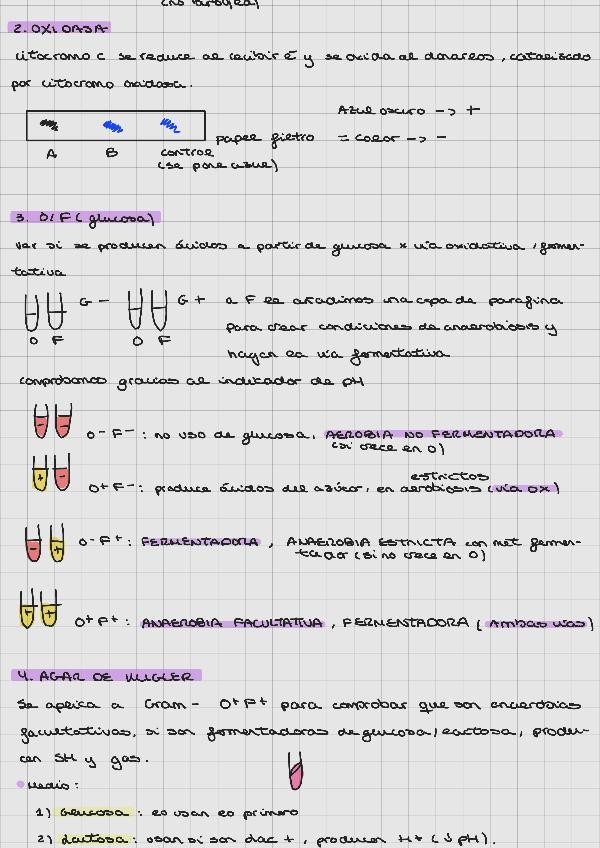 2. OXIDASA
citocromo c se reduce al recibir é y se oxida al donarlos, catalizado
por citocromo oxidasa.
Azul oscuro -> +
papel filtro = color -> -
A B control
(se pone azul)
3. O/F (glucosa)
ver si se producen ácidos a partir de glucosa x vía oxidativa / fermen-
tativa
G - G + a F le añadimos una capa de parafina
O F O F para crear condiciones de anaerobiosis y
hagan la vía fermentativa
comprobamos gracias al indicador de pH
- - O- F- : no uso de glucosa, AEROBIA NO FERMENTADORA
(si crece en O)
estrictos
+ - O+ F- : produce ácidos del azúcar, en aerobiosis (vía ox)
- + O- F+ : FERMENTADORA, ANAEROBIA ESTRICTA con met fermen-
tador (si no crece en O)
+ + O+ F+ : ANAEROBIA FACULTATIVA, FERMENTADORA (Ambas vías)
4. AGAR DE KLIGLER
Se aplica a Gram - O+ F+ para comprobar que son anaerobias
facultativas, si son fermentadoras de glucosa/lactosa, produ-
cen SH y gas.
Medio:
1) Glucosa : lo usan lo primero
2) Lactosa : usan si son Lac +, producen H+ (↓pH).